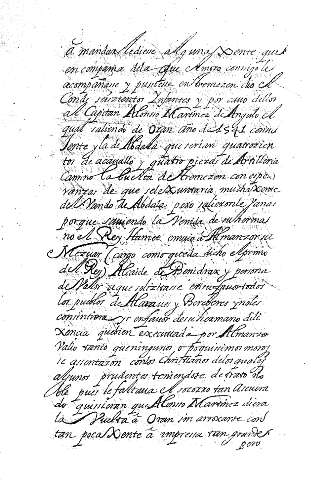 a mandar le diese alguna Xente que
en compañia de la que Almanzor consigo le
acompañase y pusiese en tremecen dio el
Conde seiscientos Infantes y por cavo dellos
al Capitan Alonso Martinez de Angulo el
qual saliendo de Oran año de 1541 con su
Xente y la de Abdala que serian quatrocien
tos de acavallo y quatro piezas de Artilleria
Camino la buelta de tremezen con espe
ranzas de que se le Xuntaria mucha Xente
del Vando de Abdala pero
porque saviendo la Venida de su herma
no el Rey Hamet, a Almanzor su
Mezuar (cargo como queda dicho el primo
del Rey) Alcaide de Benidrax y persona
de Valor a que saliese todos
los pueblos de Alaraves y Bereberes y no les
consintiera en favor de su hermano dili
Xencia que bien executada por Almanzor
Valio tanto que ningunos o poquisimos moros
se axuntaron con los Christianos de los quales
algunos prudentes temiendose de trato do
ble pues le faltava el socorro tan asegura
do quisieran que Alonso Martinez diera
la Vuelta a Oran sin arrojarse con
tan poca Xente a impresa tan grande
pero